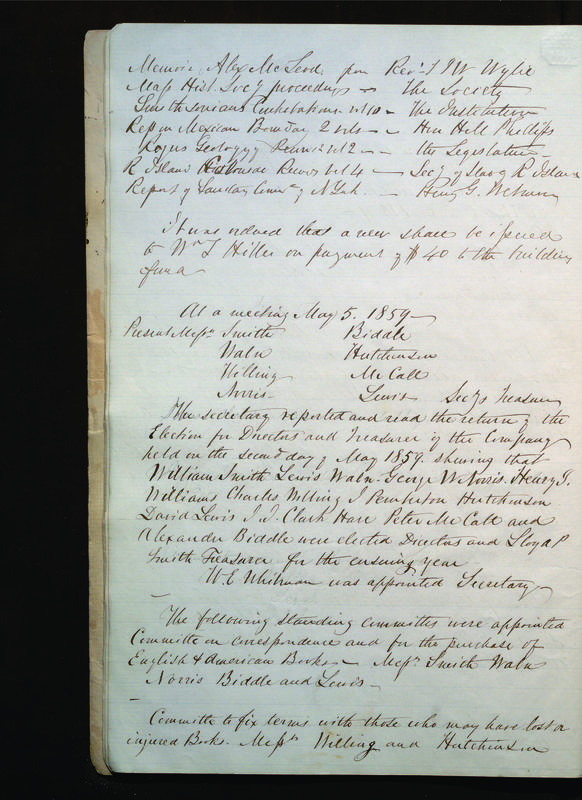 Memoir Alex McLeod from Revd J W Wylie
Mass Hist. Socy proceedings — The Society
Smithsonian Contributions vol 10 — The Institution
Rep on Mexican Boundary 2 vols — Hon Phillips
Rogers Geology Penna vol 2 — the Legislature
R Island Colonial Records vol 4 — Secy of State of R Island
Report of Sanitary of N York — Henry G.
It was ordered that a new share be issued
to Wm S Hilles on payment of $40 to the building
fund
At a meeting May 5. 1859 —
Present Messrs Smith Biddle
Waln Hutchinson
Willing McCall
Norris Lewis Secy & Treasurer
The secretary reported and read the return of the
Election for Directors and Treasurer of the Company
held on the second day of May 1859. shewing that
William Smith Lewis Waln George W Norris. Henry J.
Williams Charles Willing J Pemberton Hutchinson
David Lewis J. I. Clark Hare Peter McCall and
Alexander Biddle were elected Directors and Lloyd P
Smith Treasurer for the ensuing year
W. E. Whitman was appointed Secretary
—
The following standing committees were appointed
Committee on correspondence and for the purchase of
English & American Books — Messrs Smith Waln
Norris Biddle and Lewis —
—
Committe to fix terms with those who may have lost or
injured Books. Messrs Willing and Hutchinson